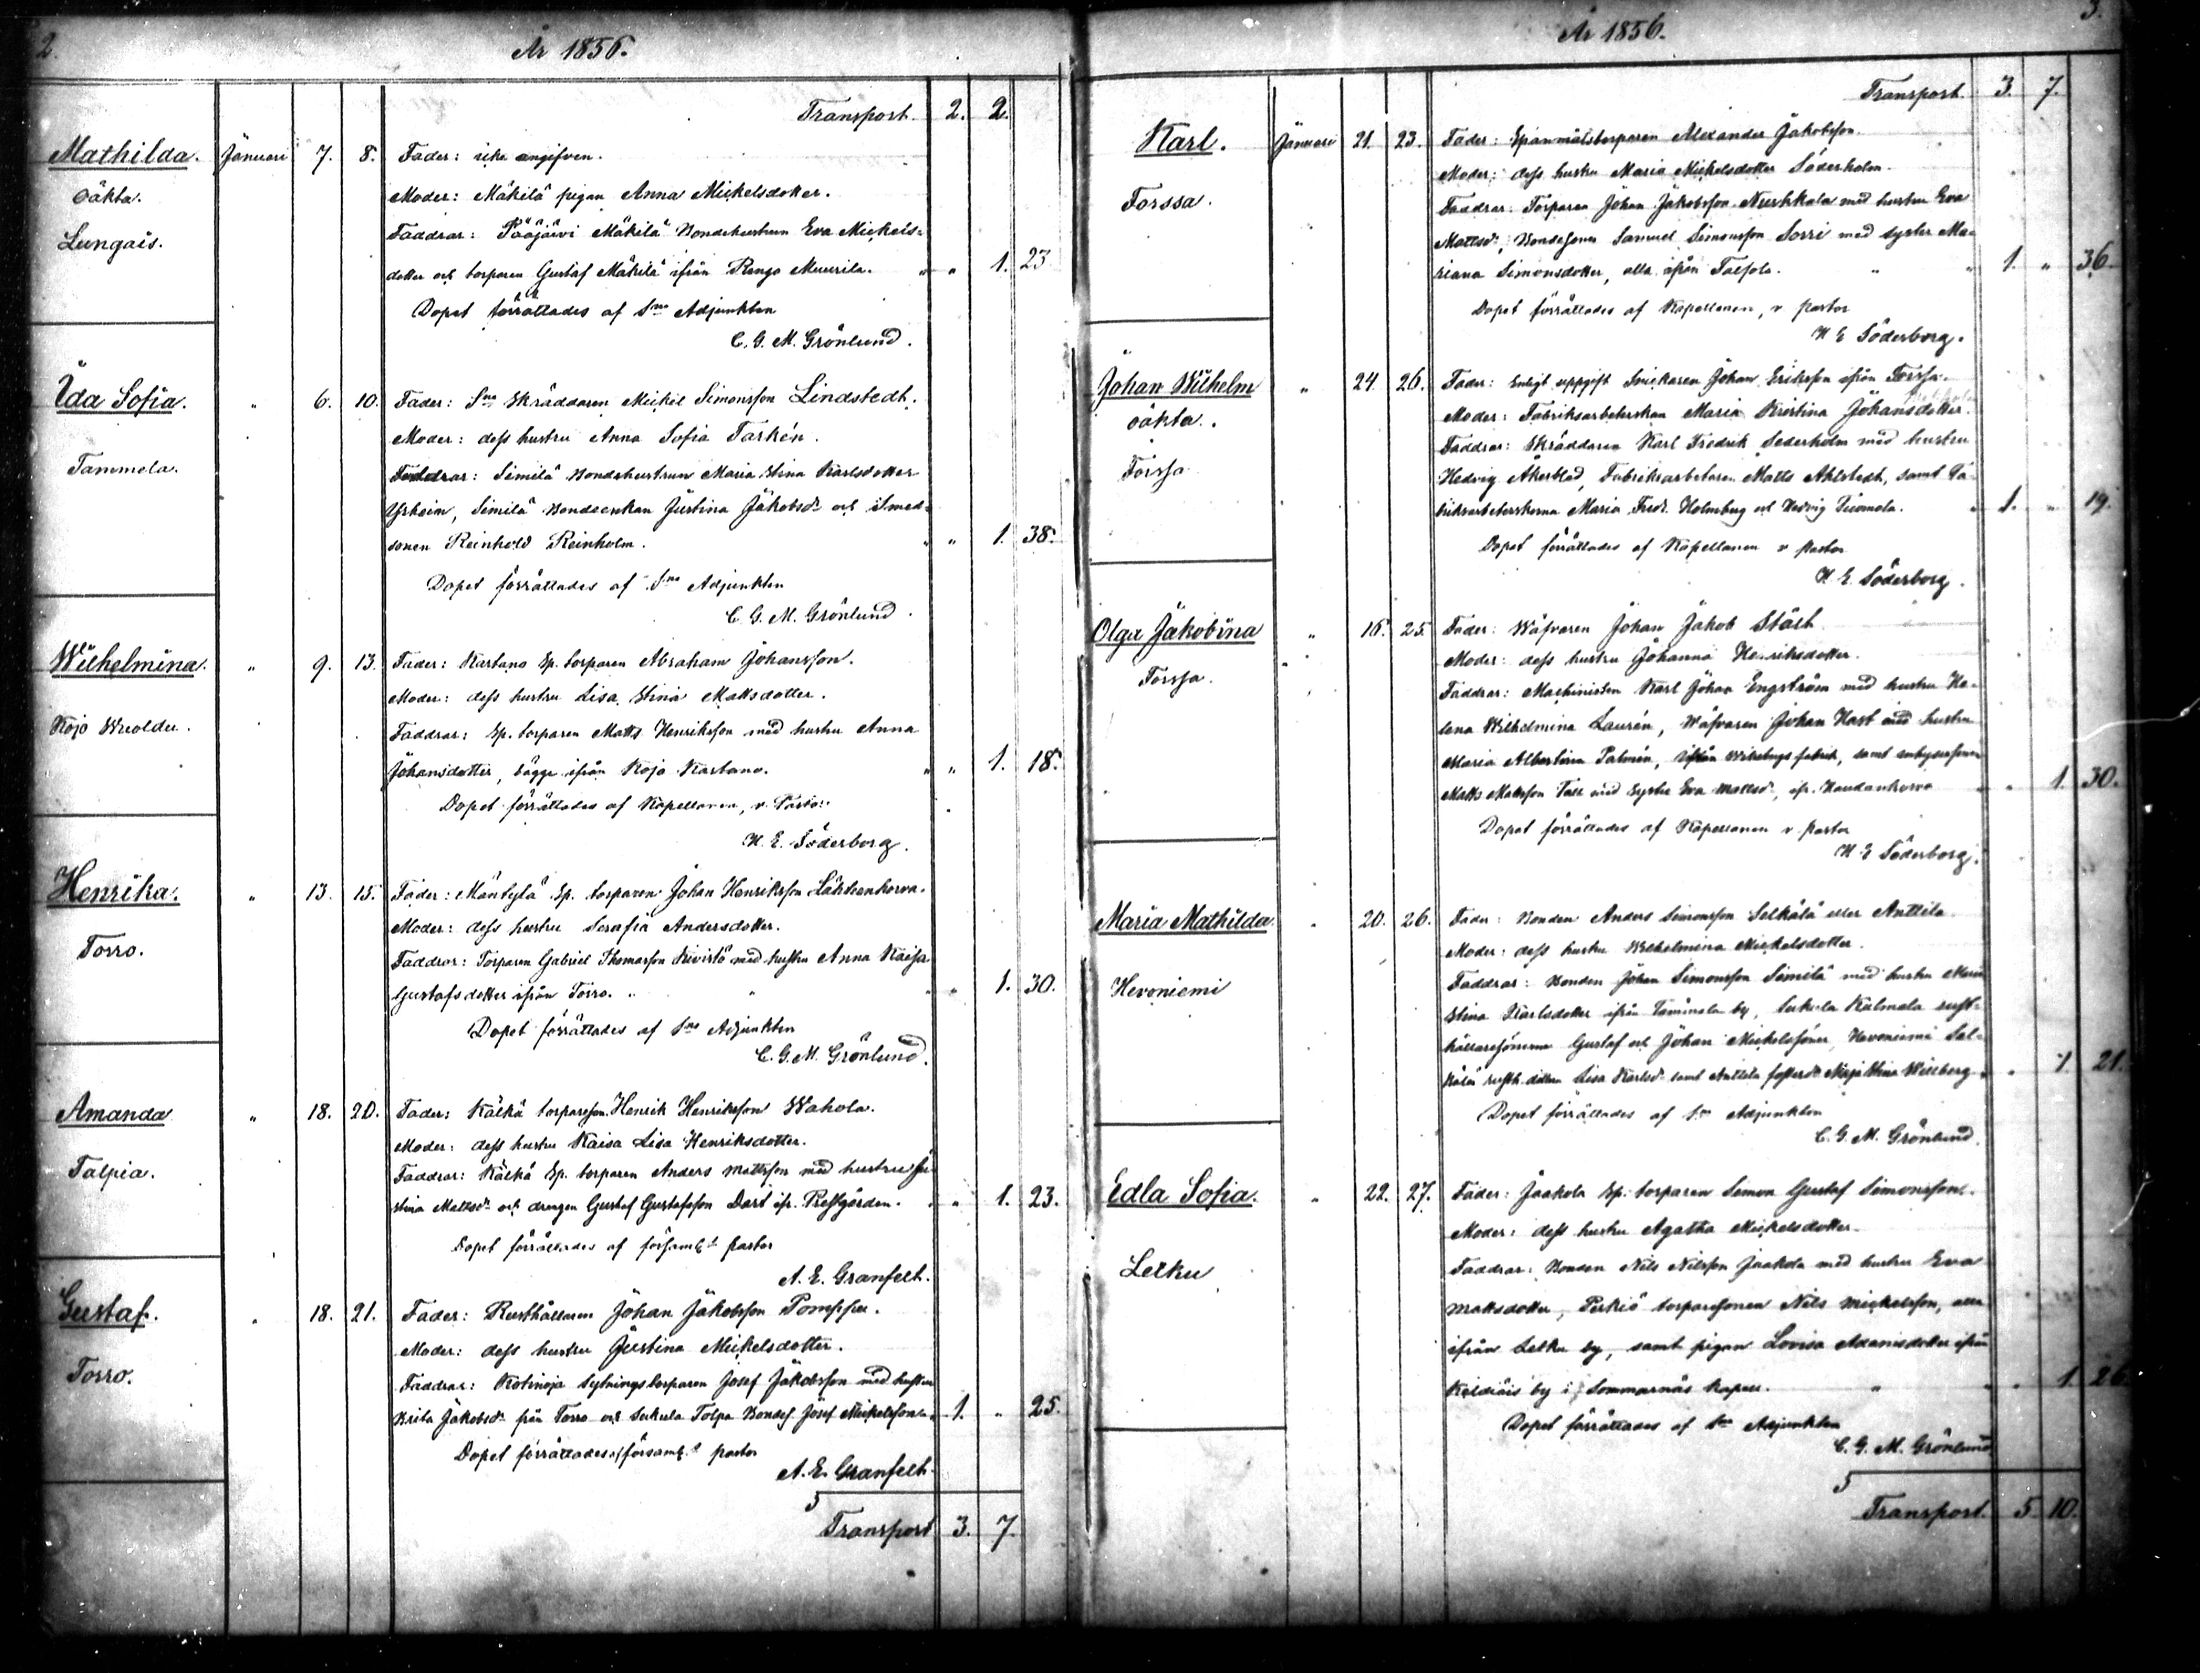 2.
År 1856.
Transport. 2. 2.
Mathilda. Januari 7. 8. Fader: icke angifven.
oäkta. Moder: Mäkilä pigan Anna Mickelsdotter.
Lungais. Faddrar: Pääjärvi Mäkilä Bondehustrun Eva Mickels-
dotter och torparen Gustaf Mäkilä ifrån Muurila. " " 1. 23
Dopet förrättades af Sne Adjunkten
C. G. M. Grönlund.
Ida Sofia. " 6. 10. Fader: Sne Skräddaren Mickel Simonsson Lindstedt.
Moder: dess hustru Anna Sofia Tarkén.
Tammela. Faddrar: Similä Bondehustrun Maria Stina Karlsdotter
Similä Bondeenkan Justina Jakobsdr och Smed-
sonen Reinhold Reinholm. " " 1. 38.
Dopet förrättades af Sne Adjunkten
C. G. M. Grönlund.
Wilhelmina. " 9. 13. Fader: Kartano Sp. torparen Abraham Johansson.
Moder: dess hustru Lisa Stina Mattsdotter.
Kojo Faddrar: Sp. torparen Matts Henriksson med hustru Anna
Johansdotter, bägge ifrån Kojo Kartano. " " 1. 18.
Dopet förrättades af Kapellanen, v. Pastor
H. E. Söderborg.
Henrika. " 13. 15. Fader: Mäntylä Sp. torparen Johan Henriksson Lähteenkorva.
Moder: dess hustru Serafia Andersdotter.
Torro. Faddrar: Torparen Gabriel Thomasson Kivistö med hustru Anna Kaisa
Gustafsdotter ifrån Torro. " " " 1. 30.
Dopet förrättades af Sne Adjunkten
C. G. M. Grönlund.
Amanda " 18. 20. Fader: Källä torpareson Henrik Henriksson Wahola.
Moder: dess hustru Kaisa Lisa Henriksdotter.
Talpia. Faddrar: Källä Sp. torparen Anders Mattsson med hustru Ju-
stina Mattsdr och drengen Gustaf Gustafsson Dari ifr. Prestgården. " " 1. 23.
Dopet förrättades af församls Pastor
A. E. Granfelt.
Gustaf. " 18. 21. Fader: Rusthållaren Johan Jakobsson Pomppu.
Moder: dess hustru Justina Mickelsdotter.
Torro. Faddrar: Kotinoja sytningstorparen Josef Jakobsson med hustru
Brita Jakobsdr från Torro och Sukula Tolpa Bondes. Josef Mickelsson 1. " 25.
Dopet förrättades af församls pastor
A. E. Granfelt.
5
Transport 3. 7.
3.
År 1856.
Transport. 3. 7.
Karl. Januari 21. 23. Fader: Spanmålstorparen Alexander Jakobsson.
Moder: dess hustru Maria Mickelsdotter Söderholm.
Forssa. Faddrar: Torparen Johan Jakobsson med hustru Eva
Mattsdr, Bondesonen Samuel Simonsson Sorri med syster Ma-
riana Simonsdotter, alla ifrån Talsola. " " 1. " 36
Dopet förrättades af Kapellanen, v pastor
H E Söderborg.
Johan Wilhelm " 24. 26. Fader: Enligt uppgift Snickaren Johan Eriksson ifrån Forssa.
oäkta. Moder: Fabriksarbeterskan Maria Kristina Johansdotter.
Faddrar: Skräddaren Karl Fredrik Sederholm med hustru
Forssa Hedvig Åkerblad, Fabriksarbetaren Matts Ahlstedt, samt Fa-
briksarbeterskorna Maria Fredr. Holmberg och Hedvig Tuomola. " 1. " 19.
Dopet förrättades af Kapellanen v pastor
H. E. Söderborg.
Olga Jakobina " 16. 25. Fader: Wäfvaren Johan Jakob Stärt
Moder: dess hustru Johanna Henriksdotter.
Forssa. Faddrar: Machinisten Karl Johan Engström med hustru He-
lena Wilhelmina Laurén, Wäfvaren Johan Hast med hustru
Maria Albertina Palmén, ifrån fabrik, samt
Matts Mattsson Tall med syster Eva Mattsdr, ifr. Haudankorva " " 1. 30.
Dopet förrättades af Kapellanen v pastor
H E Söderborg.
Maria Mathilda " 20. 26. Fader: Bonden Anders Simonsson Selkälä eller Anttila
Moder: dess hustru Wilhelmina Mickelsdotter.
Faddrar: Bonden Johan Simonsson Similä med hustru Maria
Hevoniemi Stina Karlsdotter ifrån Tammela by, Sukula Kälmala rust-
hållaresönerna Gustaf och Johan Mickelssöner, Hevoniemi Sel-
kälä rusth. dottren Lisa Karlsdr samt Anttila fosterdr Maja Stina Willberg " " 1 21.
Dopet förrättades af Sne Adjunkten
C. G. M. Grönlund.
Edla Sofia. " 22. 27. Fader: Jaakola Sp. torparen Simon Gustaf Simonsson.
Moder: dess hustru Agatha Mickelsdotter.
Letku Faddrar: Bonden Nils Nilsson Jaakola med hustru Eva
Mattsdotter, Perkiö torparesonen Nils Mickelsson, alla
ifrån Letku by, samt pigan Lovisa Adamsdotter ifrån
by i Sommarnäs kapell. " " 1. 26
Dopet förrättades af Sne Adjunkten
C. G. M. Grönlund
5
Transport. 5. 10.